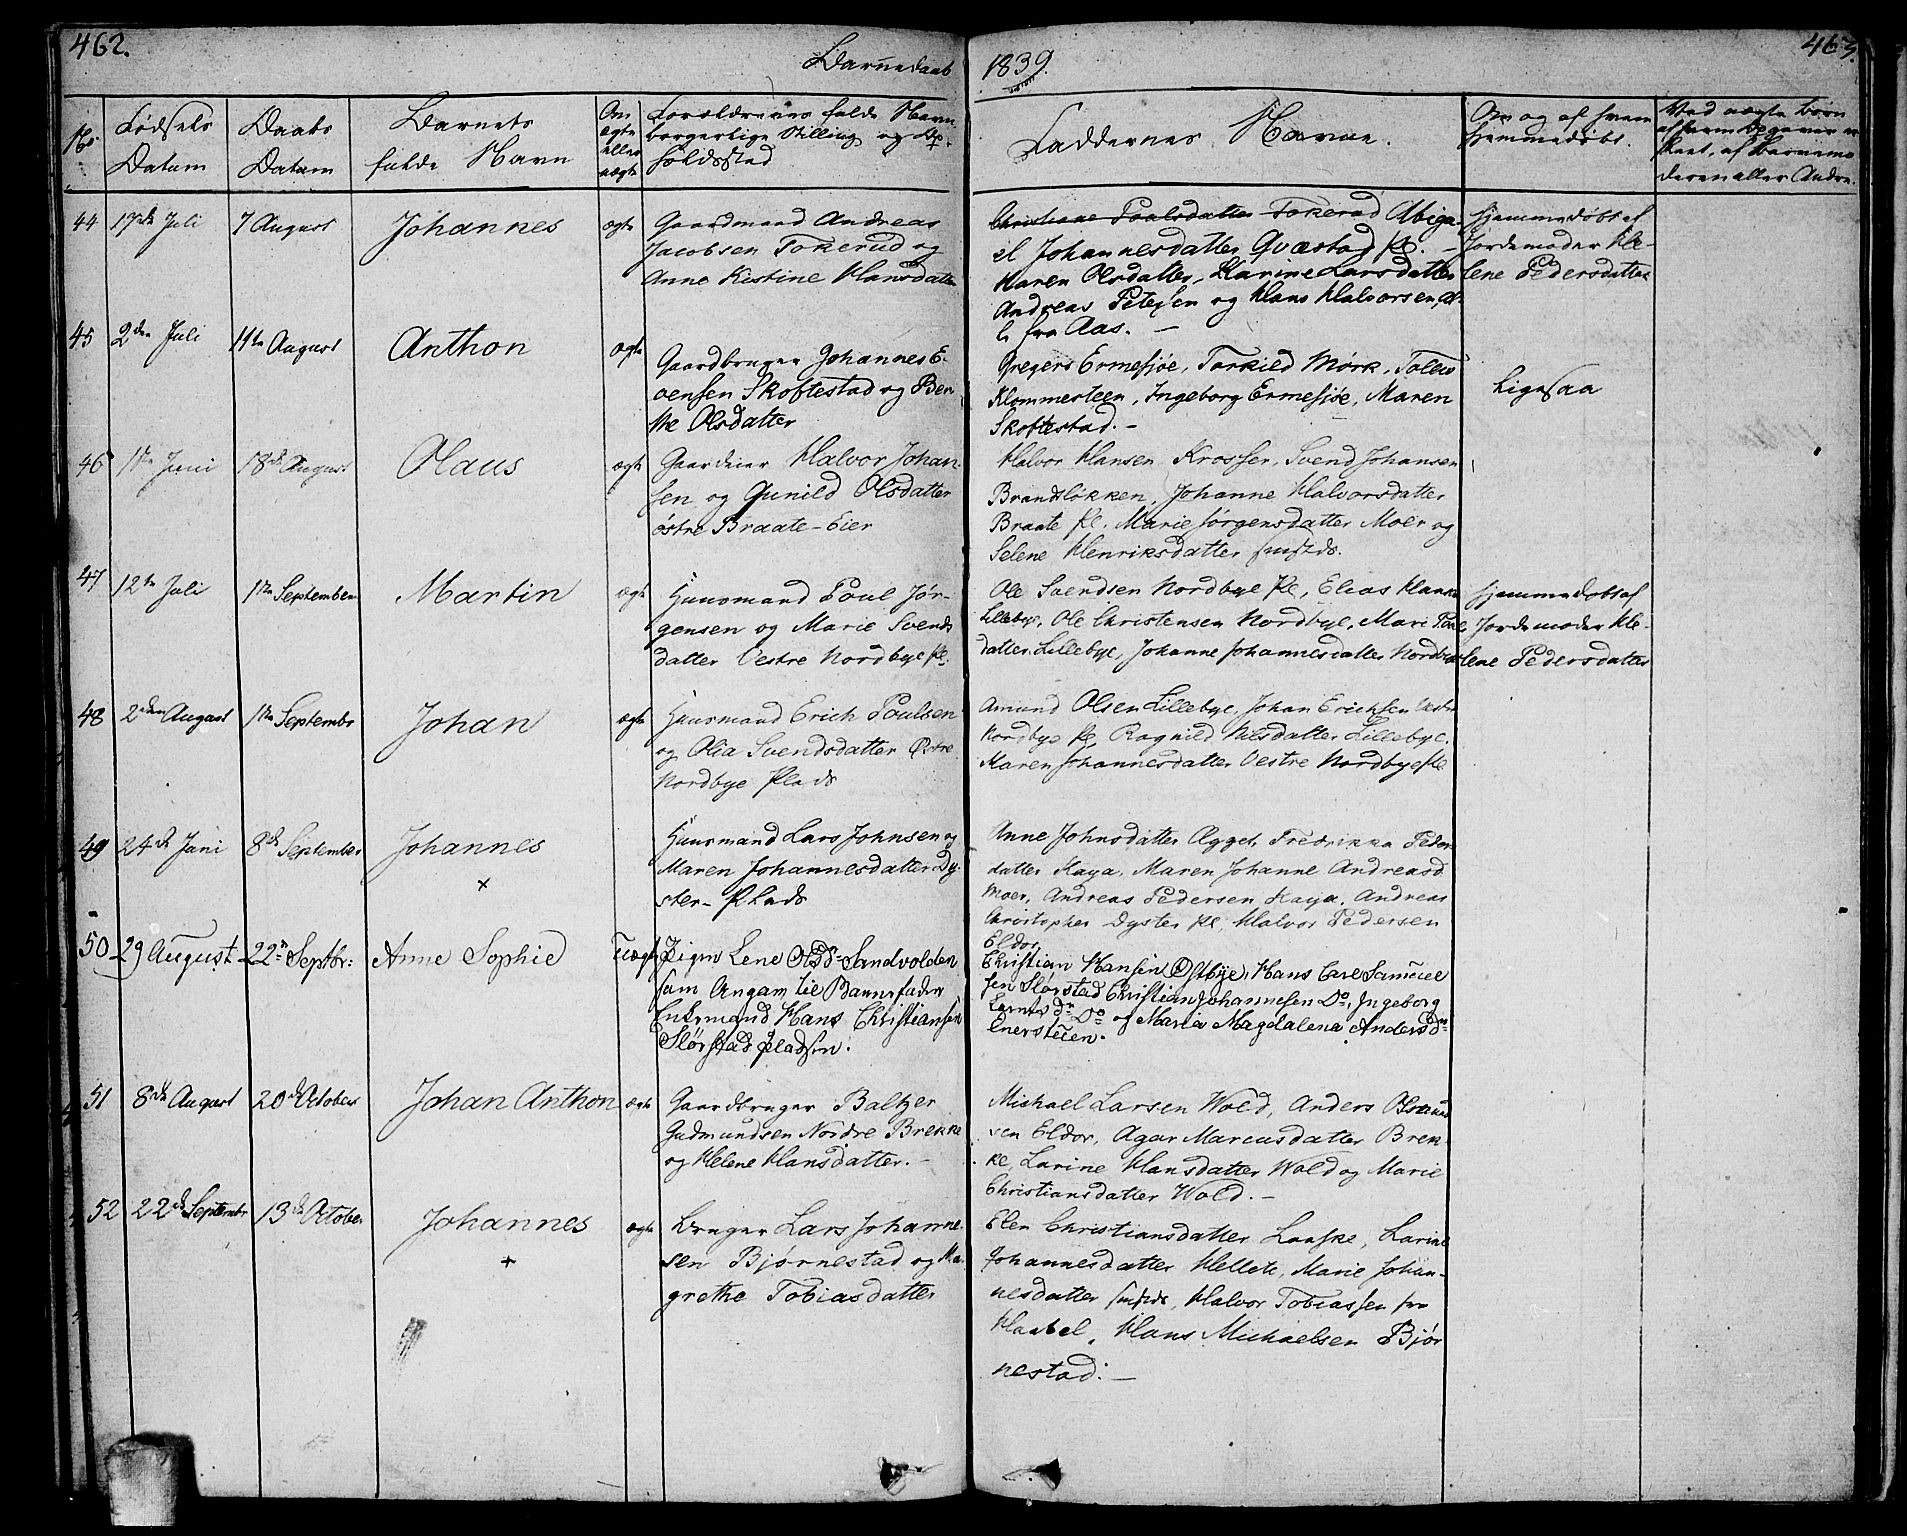 462.
Barnedaab
1839.
463.
No.
Fødsels Datum
Daabs Datum
Barnets fulde Navn
Om ægte eller uægte
Forældrenes fulde Navn,
borgerlige Stilling og Op-
holdssted
Faddernes Navne.
Om og af hvem
hjemmedøbt.
Ved uægte Børn
44 17de Juli 7 August Johannes ægte
Gaardmand Andreas
Jacobsen Tokerud og
Anne Kistine Hansdatter
Christiane Poulsdatter Tokerud Abiga-
el Johannesdatter Qvæstad Pl. -
Maren Olsdatter, Karine Larsdatter
Andreas Petersen og Hans Halvorsen, al-
le fra Aas. -
Hjemmedøbt af
Jordemoder He-
lene Pedersdatter
45 2den Juli 11te August Anthon ægte
Gaardbruger Johannes E-
vensen Skoftestad og Ben-
the Olsdatter
Gregers Ermesjøe, Torkild Mørk, Tollev
Klommesteen, Ingeborg Ermesjøe, Maren
Skoftestad. -
Ligesaa
46 1te Juni 18de August Olaus ægte
Gaardeier Halvor Johan-
sen og Gunild Olsdatter
østre Braate-Eier
Halvor Hansen Krosser, Svend Johansen
Brandsløkken, Johanne Halvorsdatter
Braate Pl, Marie Jørgensdatter Moer og
Selene Henriksdatter smstds.
47 12te Juli 1te September Martin ægte
Huusmand Poul Jør-
gensen og Marie Svends-
datter Vestre Nordbye Pl.
Ole Svendsen Nordbye Pl, Elias Hansen
Lillebye, Ole Christensen Nordbye, Mari Poul-
datter Lillebye, Johanne Johannesdatter Nordbye
Hjemmedøbt af
Jordemoder He-
lene Pedersdatter
48 2den August 1te Septembr Johan ægte
Huusmand Erich Poulsen
og Olia Svendsdatter Østre
Nordbye Plads
Amund Olsen Lillebye, Johan Erichsen Vestre
Nordbye Pl, Ragnild Nilsdatter Lillebye,
Maren Johannesdatter Vestre Nordbye Pl
49 24de Juni 8de September Johannes
+
Huusmand Lars Johnsen og
Maren Johannesdatter Dy-
ster-Plads
Anne Johnsdatter Ægget, Fredrikka Peders-
datter Kaya, Maren Johanne Andreasd
Moer, Andreas Pedersen Kaya, Andreas
Christopher Dyster Pl, Halvor Pedersen
Eldor
50 29 August 22n Septbr: Anne Sophie Uægte
Pigen Lene Olsdr Sandvolden
som Angav til Barnefader
Enkemand Hans Christiansen
Slørstad pladsen.
Christian Hansen Østbye, Hans Carl Samuel-
sen Slorstad Christian Johannesen Do, Ingeborg
Larsdr Do og Maria Magdalena Andersdr
Enersteien.
51 8de August 20de October Johan Anthon ægte
Gaardbruger Baltzer
Gudmundsen Nordre Brekke
og Helene Hansdatter. -
Michael Larsen Wold, Anders
sen Eldor, Agar Marcusdatter Brek-
ke, Larine Hansdatter Wold og Marie
Christiansdatter Wold. -
52 22de Septembr 13de October Johannes ægte
+
Bruger Lars Johanne-
sen Bjørnestad og Ma-
grethe Tobiasdatter
Elen Christiansdatter Laaske, Larine
Johannesdatter Hellete, Marie Johan-
nesdatter smstds, Halvor Tobiassen fra
Haabel, Hans Michaelsen Bjør-
nestad. -